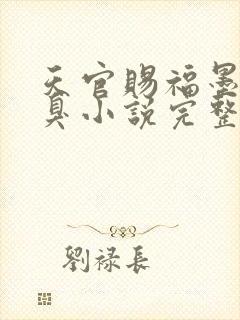 天官賜福墨
臭小說完整
劉祿長